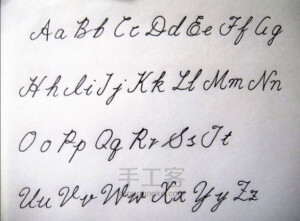 Aa Bb Cc Dd Ee Ff Gg
Hh Ii Jj Kk Ll Mm Nn
Oo Pp Qq Rr Ss Tt
手工客
Uu Vv Ww Xx Yy Zz